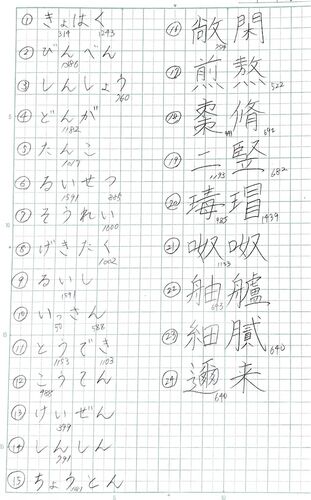 ① きょはく
319 1243
② びんべん
1386
③ しんしょう
760
④ どんが
1182
⑤ たんこ
1017
⑥ るいせつ
1591
⑦ そうれい
1600
⑧ げきたく
1002
⑨ るいし
1591
⑩ いっさん
50 588
⑪ とうでき
1153 1103
⑫ こうてん
488
⑬ けいぜん
399
⑭ しんしん
791
⑮ ちょうとん
⑯ 敞閑
⑰ 煎熬
522
⑱ 棗脩
⑲ 二竪
1193 682
⑳ 瑇瑁
985 1439
㉑ 呶呶
1133
㉒ 舳艫
㉓ 細膩
640
㉔ 邇来
640